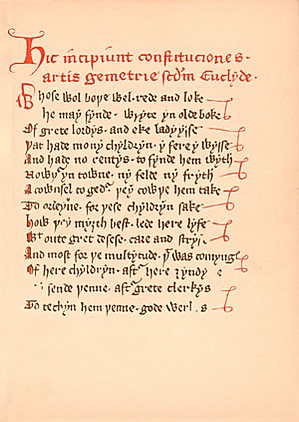 Hic incipiunt constituciones
artis gemetrie scdm Euclyde.
Whose wol boþe wel rede and loke
he may fynde wryte yn olde boke
Of grete lordys and eke ladyysse
þat hade mony chyldryn y fere y wysse
And hade no rentys to fynde hem wyth
Nowþur yn towne ny felde ny fryth
A cownsel togedr þey cowþe hem take
To ordeyne for þese chyldryn sake
how þey myȝth best lede here lyfe
Wt oute gret desese care and stryf
And most for þe multytude þt was comyng
Of here chyldryn aftr here ȝyndy
sende þenne aftr grete clerkys
To techyn hem þenne gode werkes